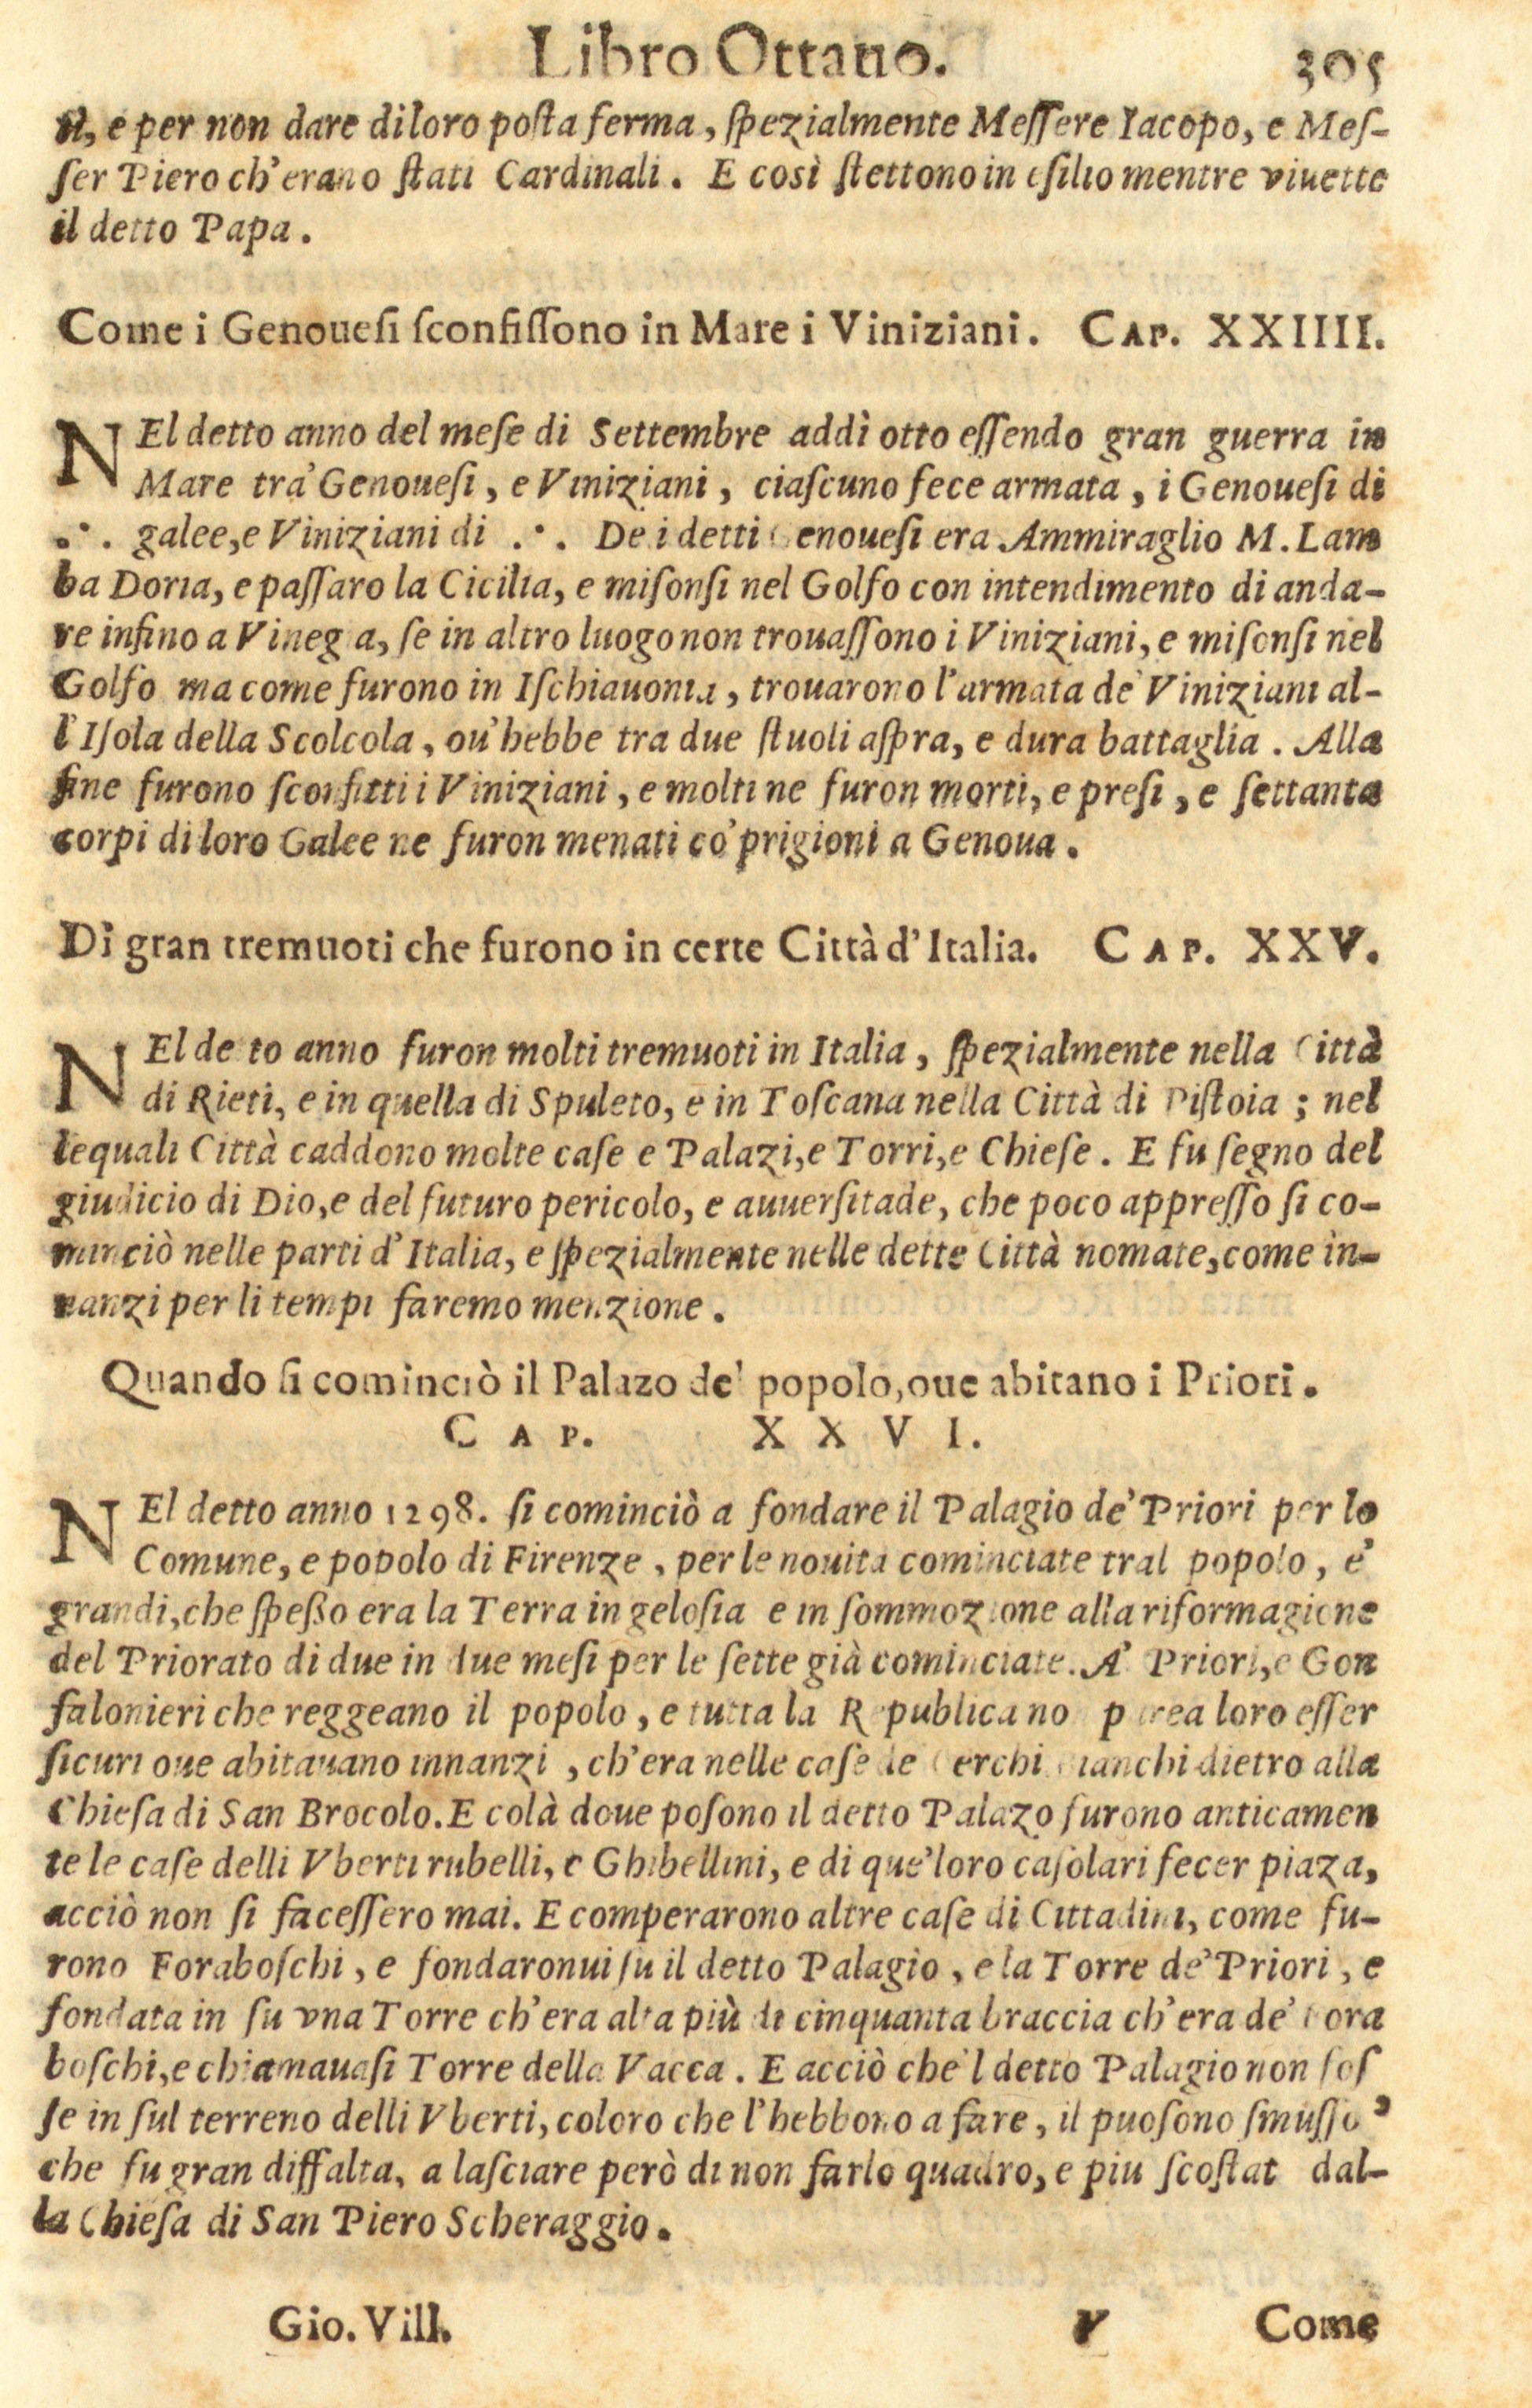 Libro Ottauo. 305
ſi, e per non dare di loro poſta ferma, ſpezialmente Meſſere Iacopo, e Meſ-
ſer Piero ch'erano ſtati Cardinali. E così ſtettono in eſilio mentre viuette
il detto Papa.
Come i Genoueſi ſconfiſſono in Mare i Viniziani. CAP. XXIIII.
NEl detto anno del meſe di Settembre addì otto eſſendo gran guerra in
Mare tra' Genoueſi, e Viniziani, ciaſcuno fece armata, i Genoueſi di
.·. galee, e Viniziani di .·. De i detti Genoueſi era Ammiraglio M. Lam
ba Doria, e paſſaro la Cicilia, e miſonſi nel Golfo con intendimento di anda-
re infino a Vinegia, ſe in altro luogo non trouaſſono i Viniziani, e miſonſi nel
Golfo ma come furono in Iſchiauonia, trouarono l'armata de' Viniziani al-
l'Iſola della Scolcola, ou'hebbe tra due ſtuoli aſpra, e dura battaglia. Alla
fine furono ſconfitti i Viniziani, e molti ne furon morti, e preſi, e ſettanta
corpi di loro Galee ne furon menati co' prigioni a Genoua.
Di gran tremuoti che furono in certe Città d'Italia. CAP. XXV.
NEl detto anno furon molti tremuoti in Italia, ſpezialmente nella Città
di Rieti, e in quella di Spuleto, e in Toſcana nella Città di Piſtoia; nel
lequali Città caddono molte caſe e Palazi, e Torri, e Chieſe. E fu ſegno del
giudicio di Dio, e del futuro pericolo, e auuerſitade, che poco appreſſo ſi co-
minciò nelle parti d'Italia, e ſpezialmente nelle dette Città nomate, come in-
nanzi per li tempi faremo menzione.
Quando ſi cominciò il Palazo de' popolo, oue abitano i Priori.
CAP. XXVI.
NEl detto anno 1298. ſi cominciò a fondare il Palagio de' Priori per lo
Comune, e popolo di Firenze, per le nouita cominciate tral popolo, e'
grandi, che ſpeßo era la Terra in geloſia e in ſommozione alla riformagione
del Priorato di due in due meſi per le ſette già cominciate. A' Priori, e Gon
falonieri che reggeano il popolo, e tutta la Republica no parea loro eſſer
ſicuri oue abitauano innanzi, ch'era nelle caſe de Cerchi Bianchi dietro alla
Chieſa di San Brocolo. E colà doue poſono il detto Palazo furono anticamen
te le caſe delli Vberti rubelli, e Ghibellini, e di que' loro caſolari fecer piaza,
acciò non ſi faceſſero mai. E comperarono altre caſe di Cittadini, come fu-
rono Foraboſchi, e fondaronui ſu il detto Palagio, e la Torre de' Priori, e
fondata in ſu vna Torre ch'era alta più di cinquanta braccia ch'era de' Fora
boſchi, e chiamauaſi Torre della Vacca. E acciò che'l detto Palagio non foſ
ſe in ſul terreno delli Vberti, coloro che l'hebbono a fare, il puoſono ſmuſſo'
che fu gran diffalta, a laſciare però di non farlo quadro, e piu ſcoſtat dal-
la Chieſa di San Piero Scheraggio.
Gio. Vill. V Come